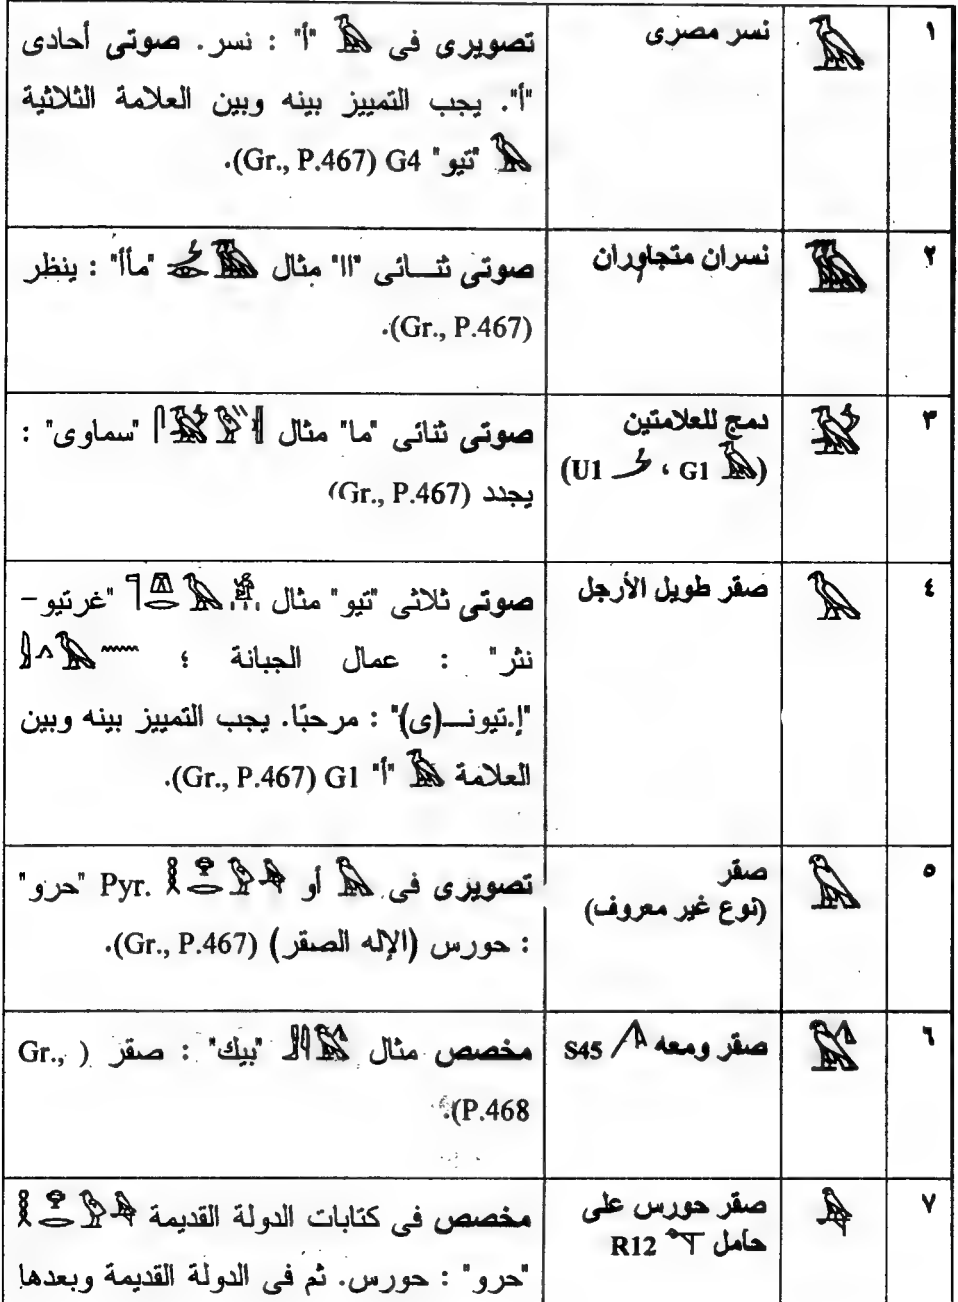 ١ نسر مصرى تصويرى فى 𓄿 "أ" : نسر. صوتى أحادى
"أ". يجب التمييز بينه وبين العلامة الثلاثية
𓅂 "تيو" G4 (Gr., P.467).
٢ 𓅀 نسران متجاوران صوتى ثنائى "اا" مثال "مأأ" : ينظر
(Gr., P.467).
٣ 𓅁 دمج للعلامتين صوتى ثنائى "ما" مثال "سماوى" :
(𓄿 G1 ، 𓌳 U1) يجدد (Gr., P.467)
٤ 𓅂 صقر طويل الأرجل صوتى ثلاثى "تيو" مثال "غرتيو-
نثر" : عمال الجبانة ؛
"إ.تيونـ(ى)" : مرحبًا. يجب التمييز بينه وبين
العلامة 𓄿 "أ" G1 (Gr., P.467).
٥ 𓅃 صقر تصويرى فى 𓅃 أو Pyr. "حرو"
(نوع غير معروف) : حورس (الإله الصقر) (Gr., P.467).
٦ 𓅄 صقر ومعه S45 مخصص مثال "بيك" : صقر (Gr.,
P.468).
٧ 𓅆 صقر حورس على مخصص فى كتابات الدولة القديمة
حامل R12 "حرو" : حورس. ثم فى الدولة القديمة وبعدها